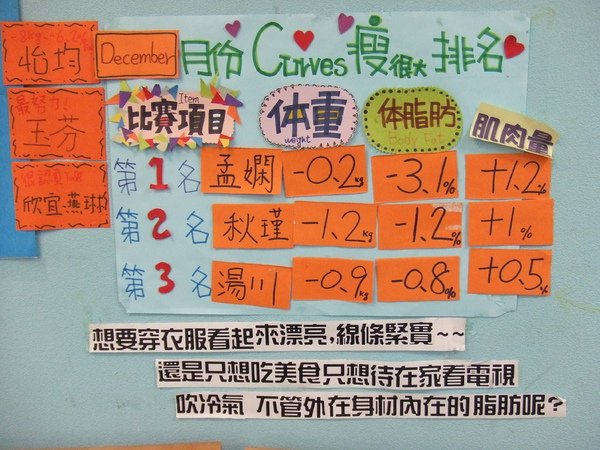 -3kg~-6.2kg
怡均
December 月份 Curves 瘦很大 排名
最努力!
玉芬
很認真
欣宜.燕琳
比賽項目 Item 体重 weight 体脂肪 Body Fat 肌肉量
第1名 孟嫻 -0.2kg -3.1% +1.2%
第2名 秋瑾 -1.2kg -1.2% +1%
第3名 湯川 -0.9kg -0.8% +0.5%
想要穿衣服看起來漂亮,線條緊實~~
還是只想吃美食只想待在家看電視
吹冷氣 不管外在身材內在的脂肪呢?